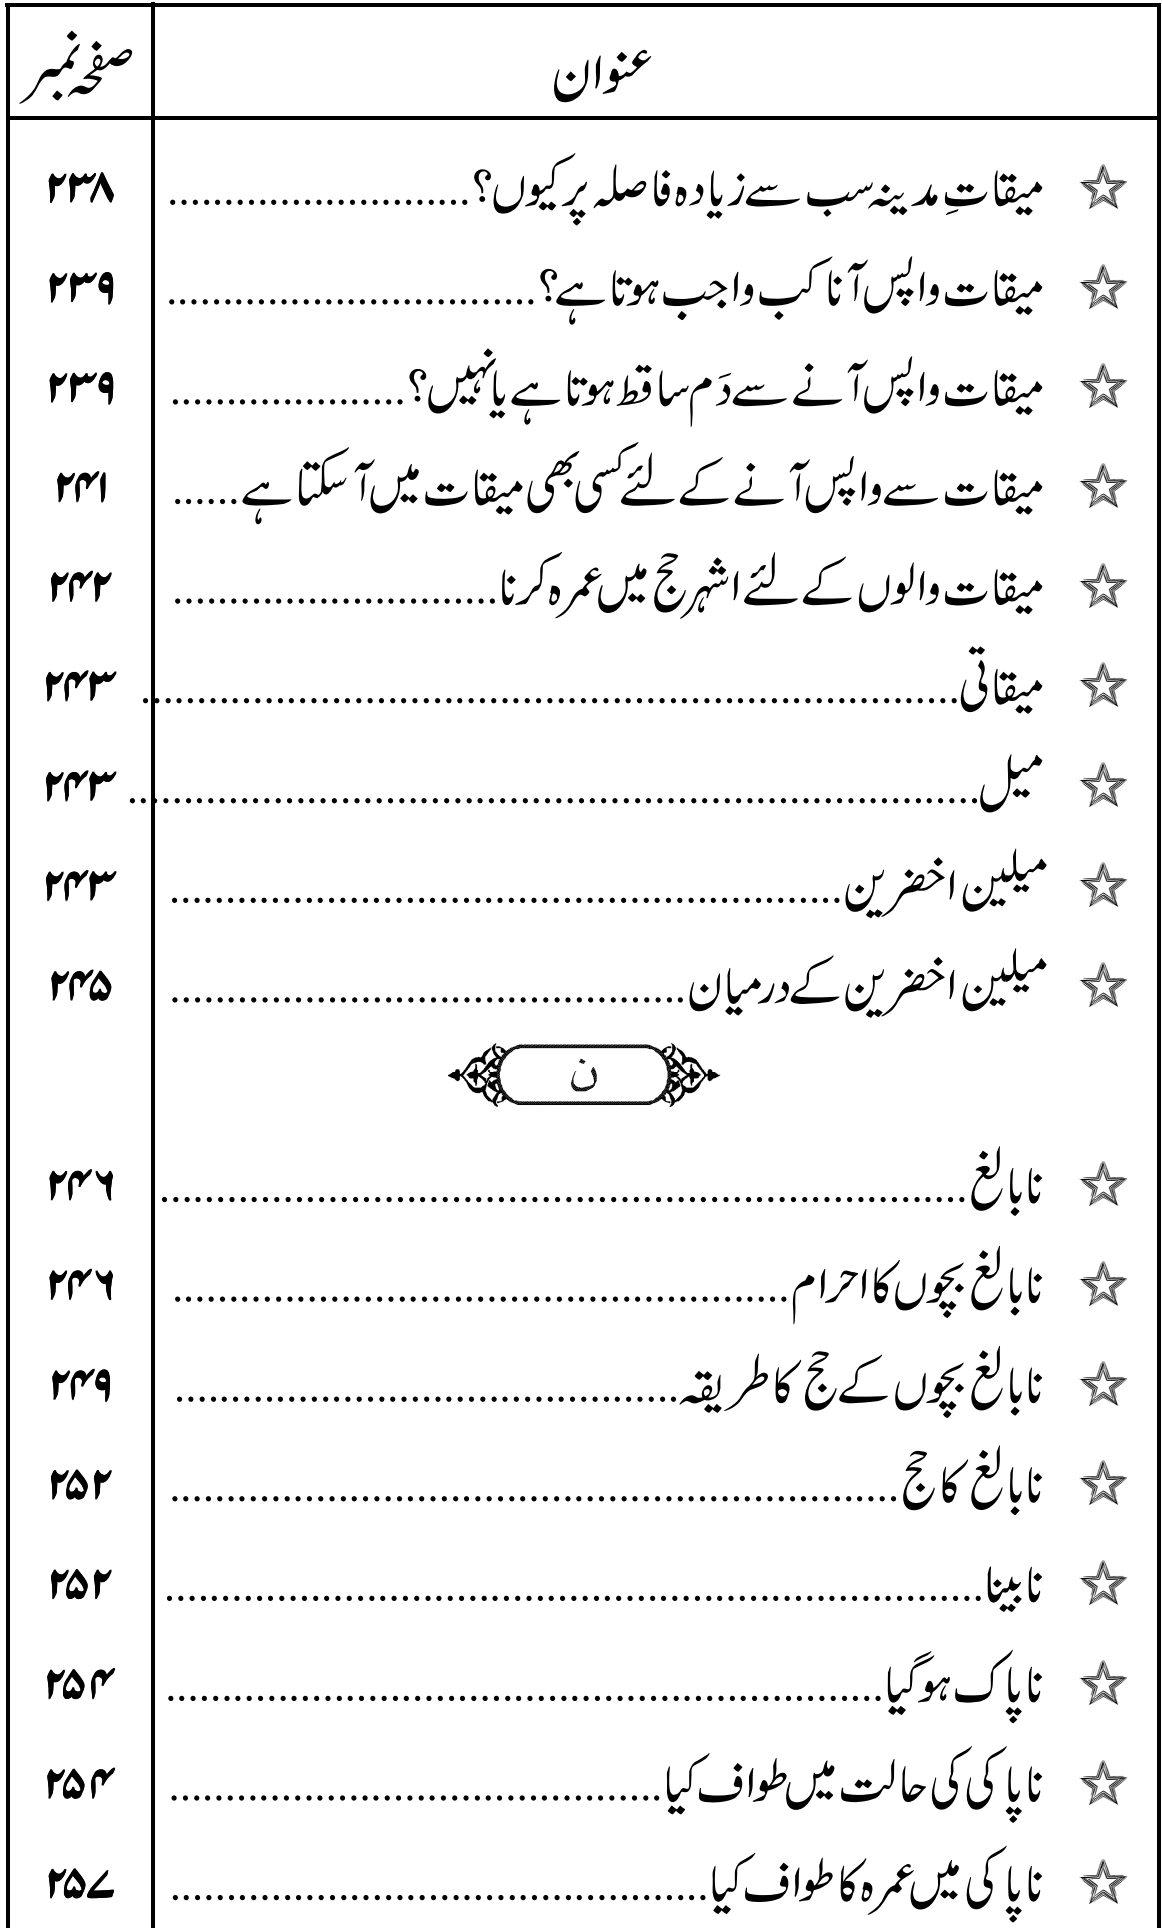 عنوان صفحہ نمبر
☆ میقاتِ مدینہ سب سے زیادہ فاصلہ پر کیوں؟ ........................... ۲۳۸
☆ میقات واپس آنا کب واجب ہوتا ہے؟ ................................. ۲۳۹
☆ میقات واپس آنے سے دَم ساقط ہوتا ہے یا نہیں؟ ..................... ۲۳۹
☆ میقات سے واپس آنے کے لئے کسی بھی میقات میں آسکتا ہے ...... ۲۴۱
☆ میقات والوں کے لئے اشہر حج میں عمرہ کرنا ............................. ۲۴۲
☆ میقاتی ......................................................................... ۲۴۳
☆ میل ............................................................................ ۲۴۳
☆ میلین اخضرین ............................................................ ۲۴۳
☆ میلین اخضرین کے درمیان .............................................. ۲۴۵
ن
☆ نابالغ ........................................................................ ۲۴۶
☆ نابالغ بچوں کا احرام ....................................................... ۲۴۶
☆ نابالغ بچوں کے حج کا طریقہ ............................................. ۲۴۹
☆ نابالغ کا حج ................................................................. ۲۵۲
☆ نابینا ......................................................................... ۲۵۲
☆ ناپاک ہوگیا ................................................................ ۲۵۴
☆ ناپاکی کی حالت میں طواف کیا ............................................ ۲۵۴
☆ ناپاکی میں عمرہ کا طواف کیا ................................................ ۲۵۷